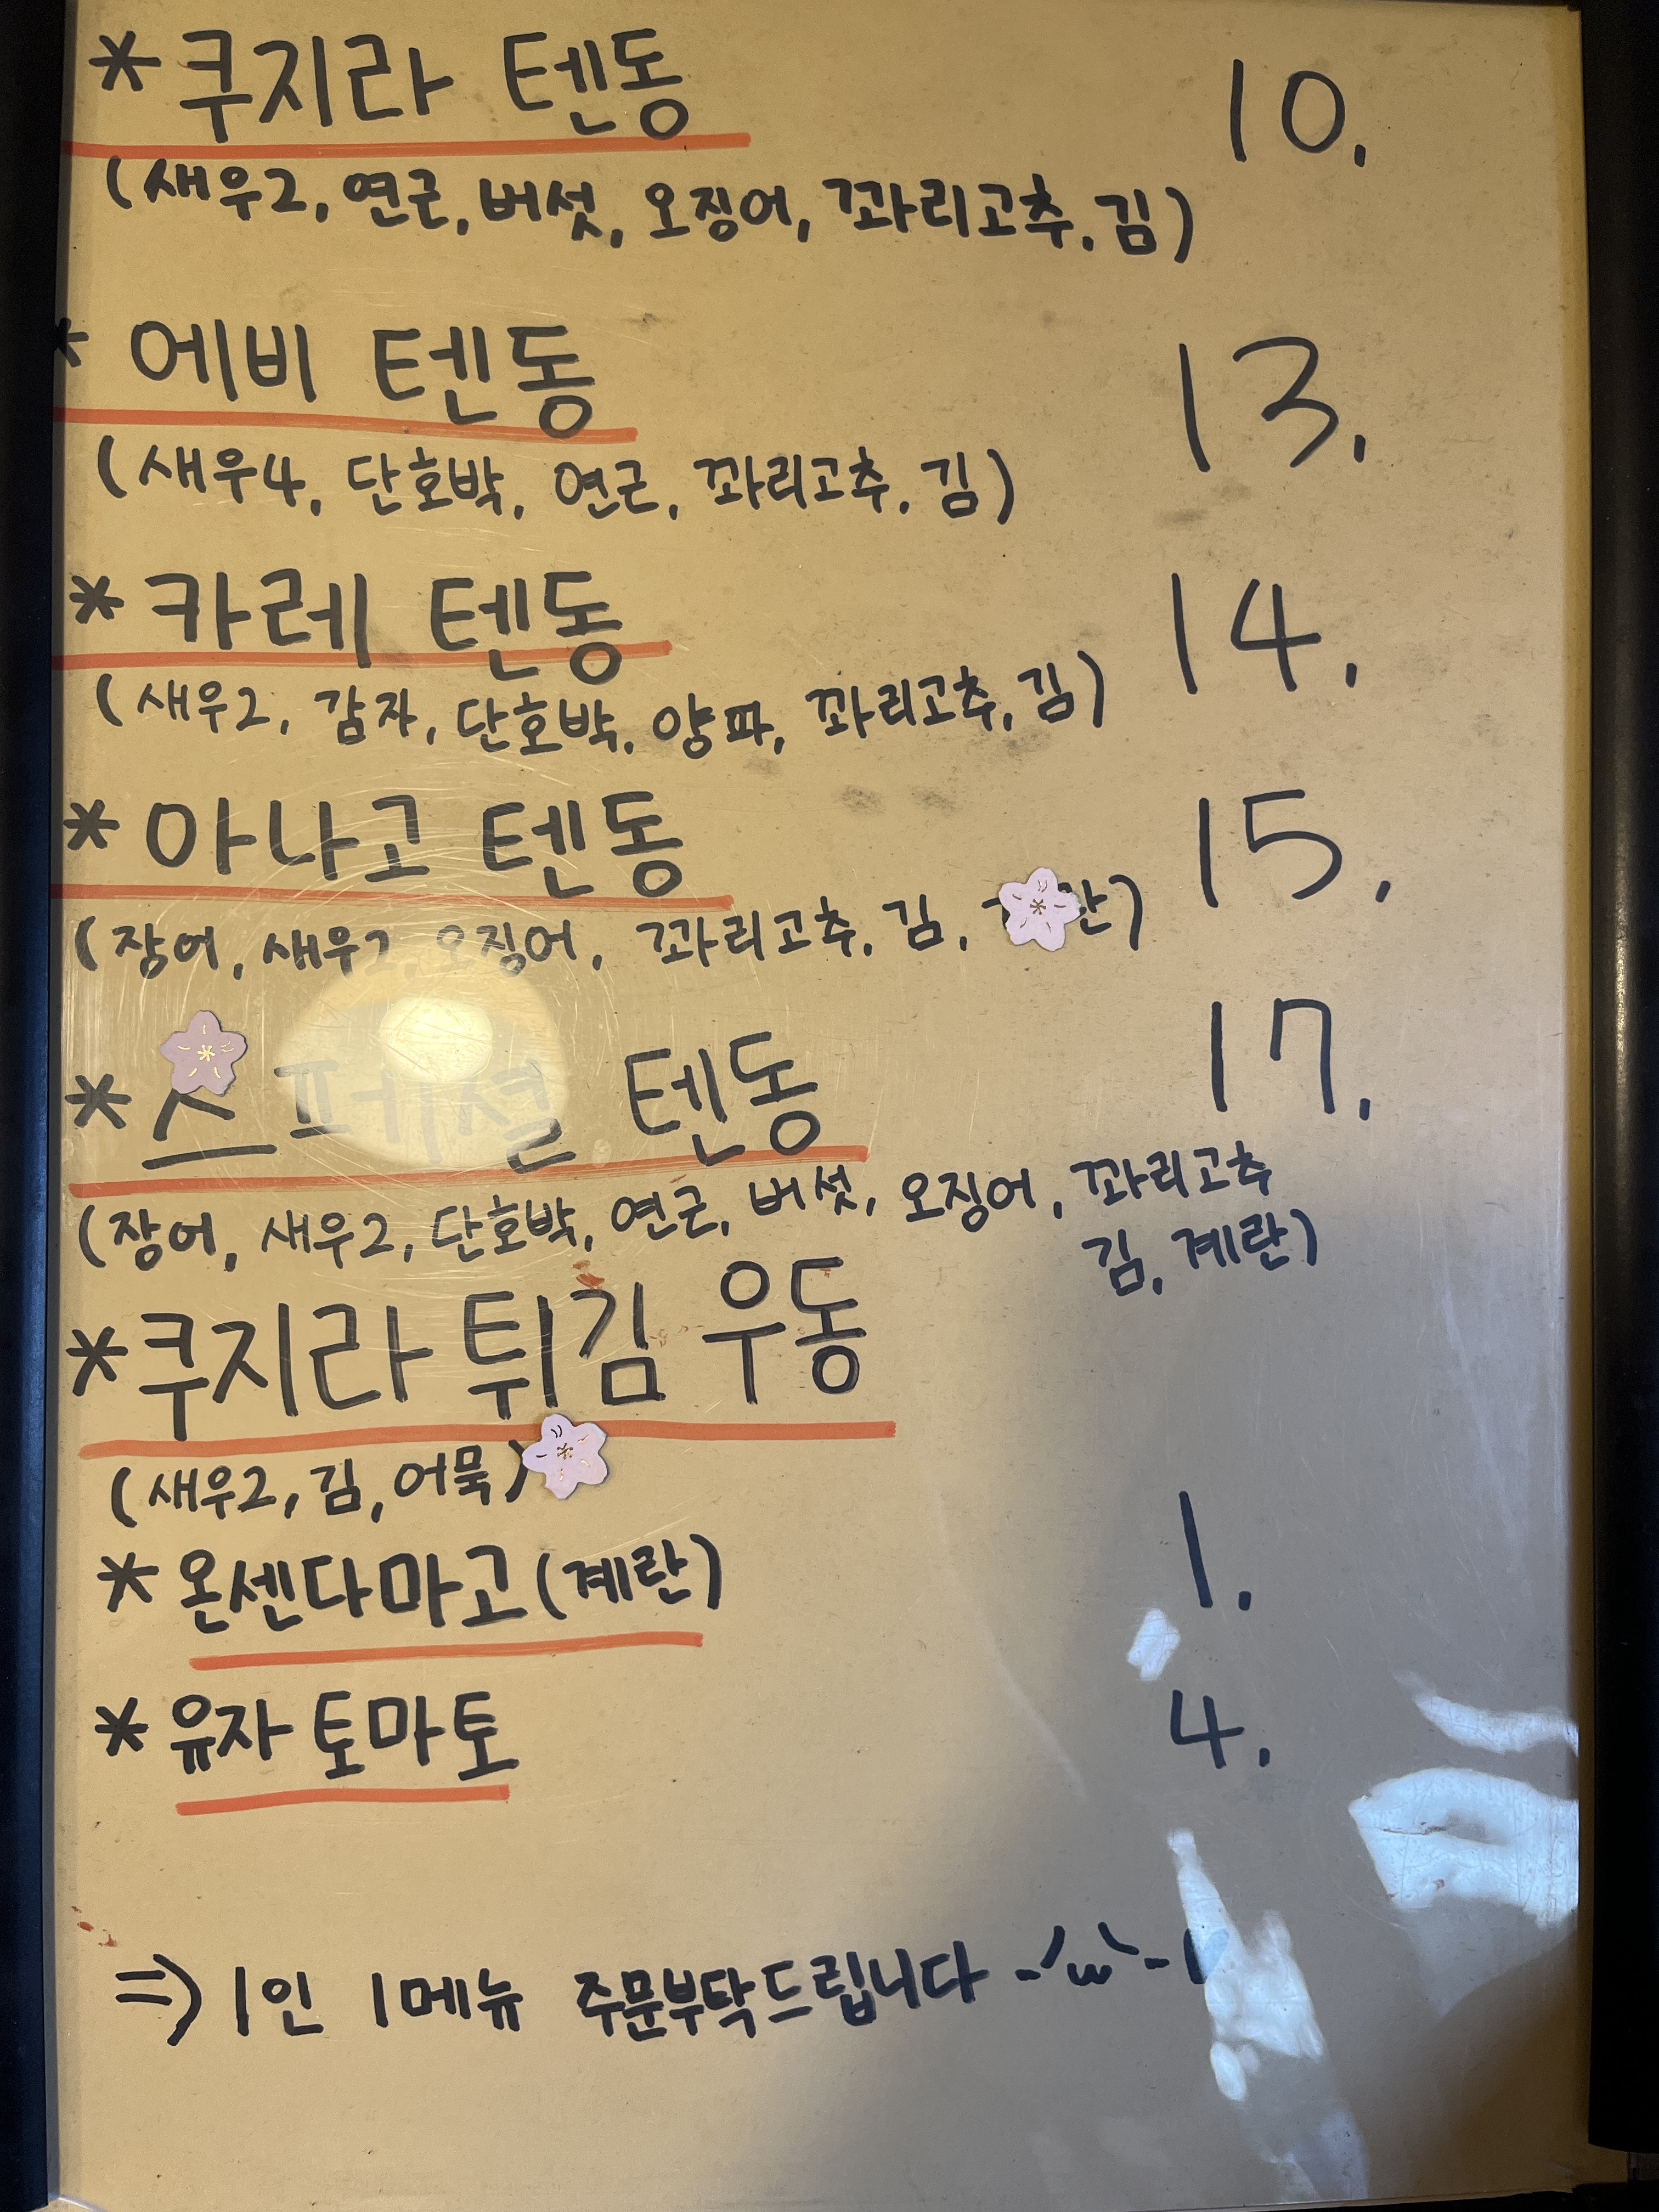 * 쿠지라 텐동 10.
(새우2, 연근, 버섯, 오징어, 꽈리고추, 김)
* 에비 텐동 13.
(새우4, 단호박, 연근, 꽈리고추, 김)
* 카레 텐동 14.
(새우2, 감자, 단호박, 양파, 꽈리고추, 김)
* 아나고 텐동 15.
(장어, 새우2, 오징어, 꽈리고추, 김, )
* 스페셜 텐동 17.
(장어, 새우2, 단호박, 연근, 버섯, 오징어, 꽈리고추
김, 계란)
* 쿠지라 튀김 우동
(새우2, 김, 어묵)
* 온센다마고 (계란) 1.
* 유자 토마토 4.
⇒ 1인 1메뉴 주문부탁드립니다